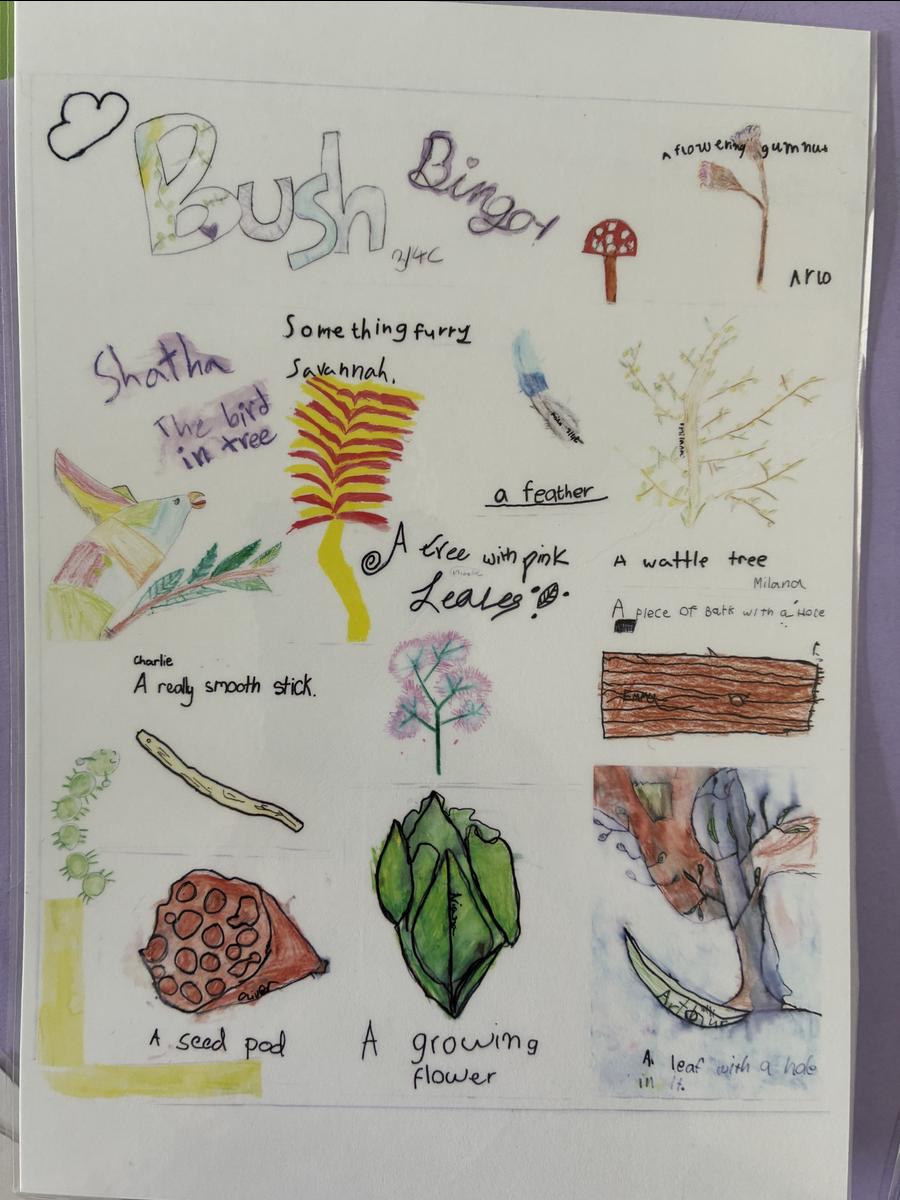 Bush Bingo!
3/4C
A flowering gumnut
Arlo
Something furry
Savannah.
Shatha
The bird
in tree
a feather
A tree with pink
Leaves
A wattle tree
Milana
A piece of Bark with a Hole
Emmy
Charlie
A really smooth stick.
Oliver
A seed pod
A growing
flower
A leaf with a hole
in it.